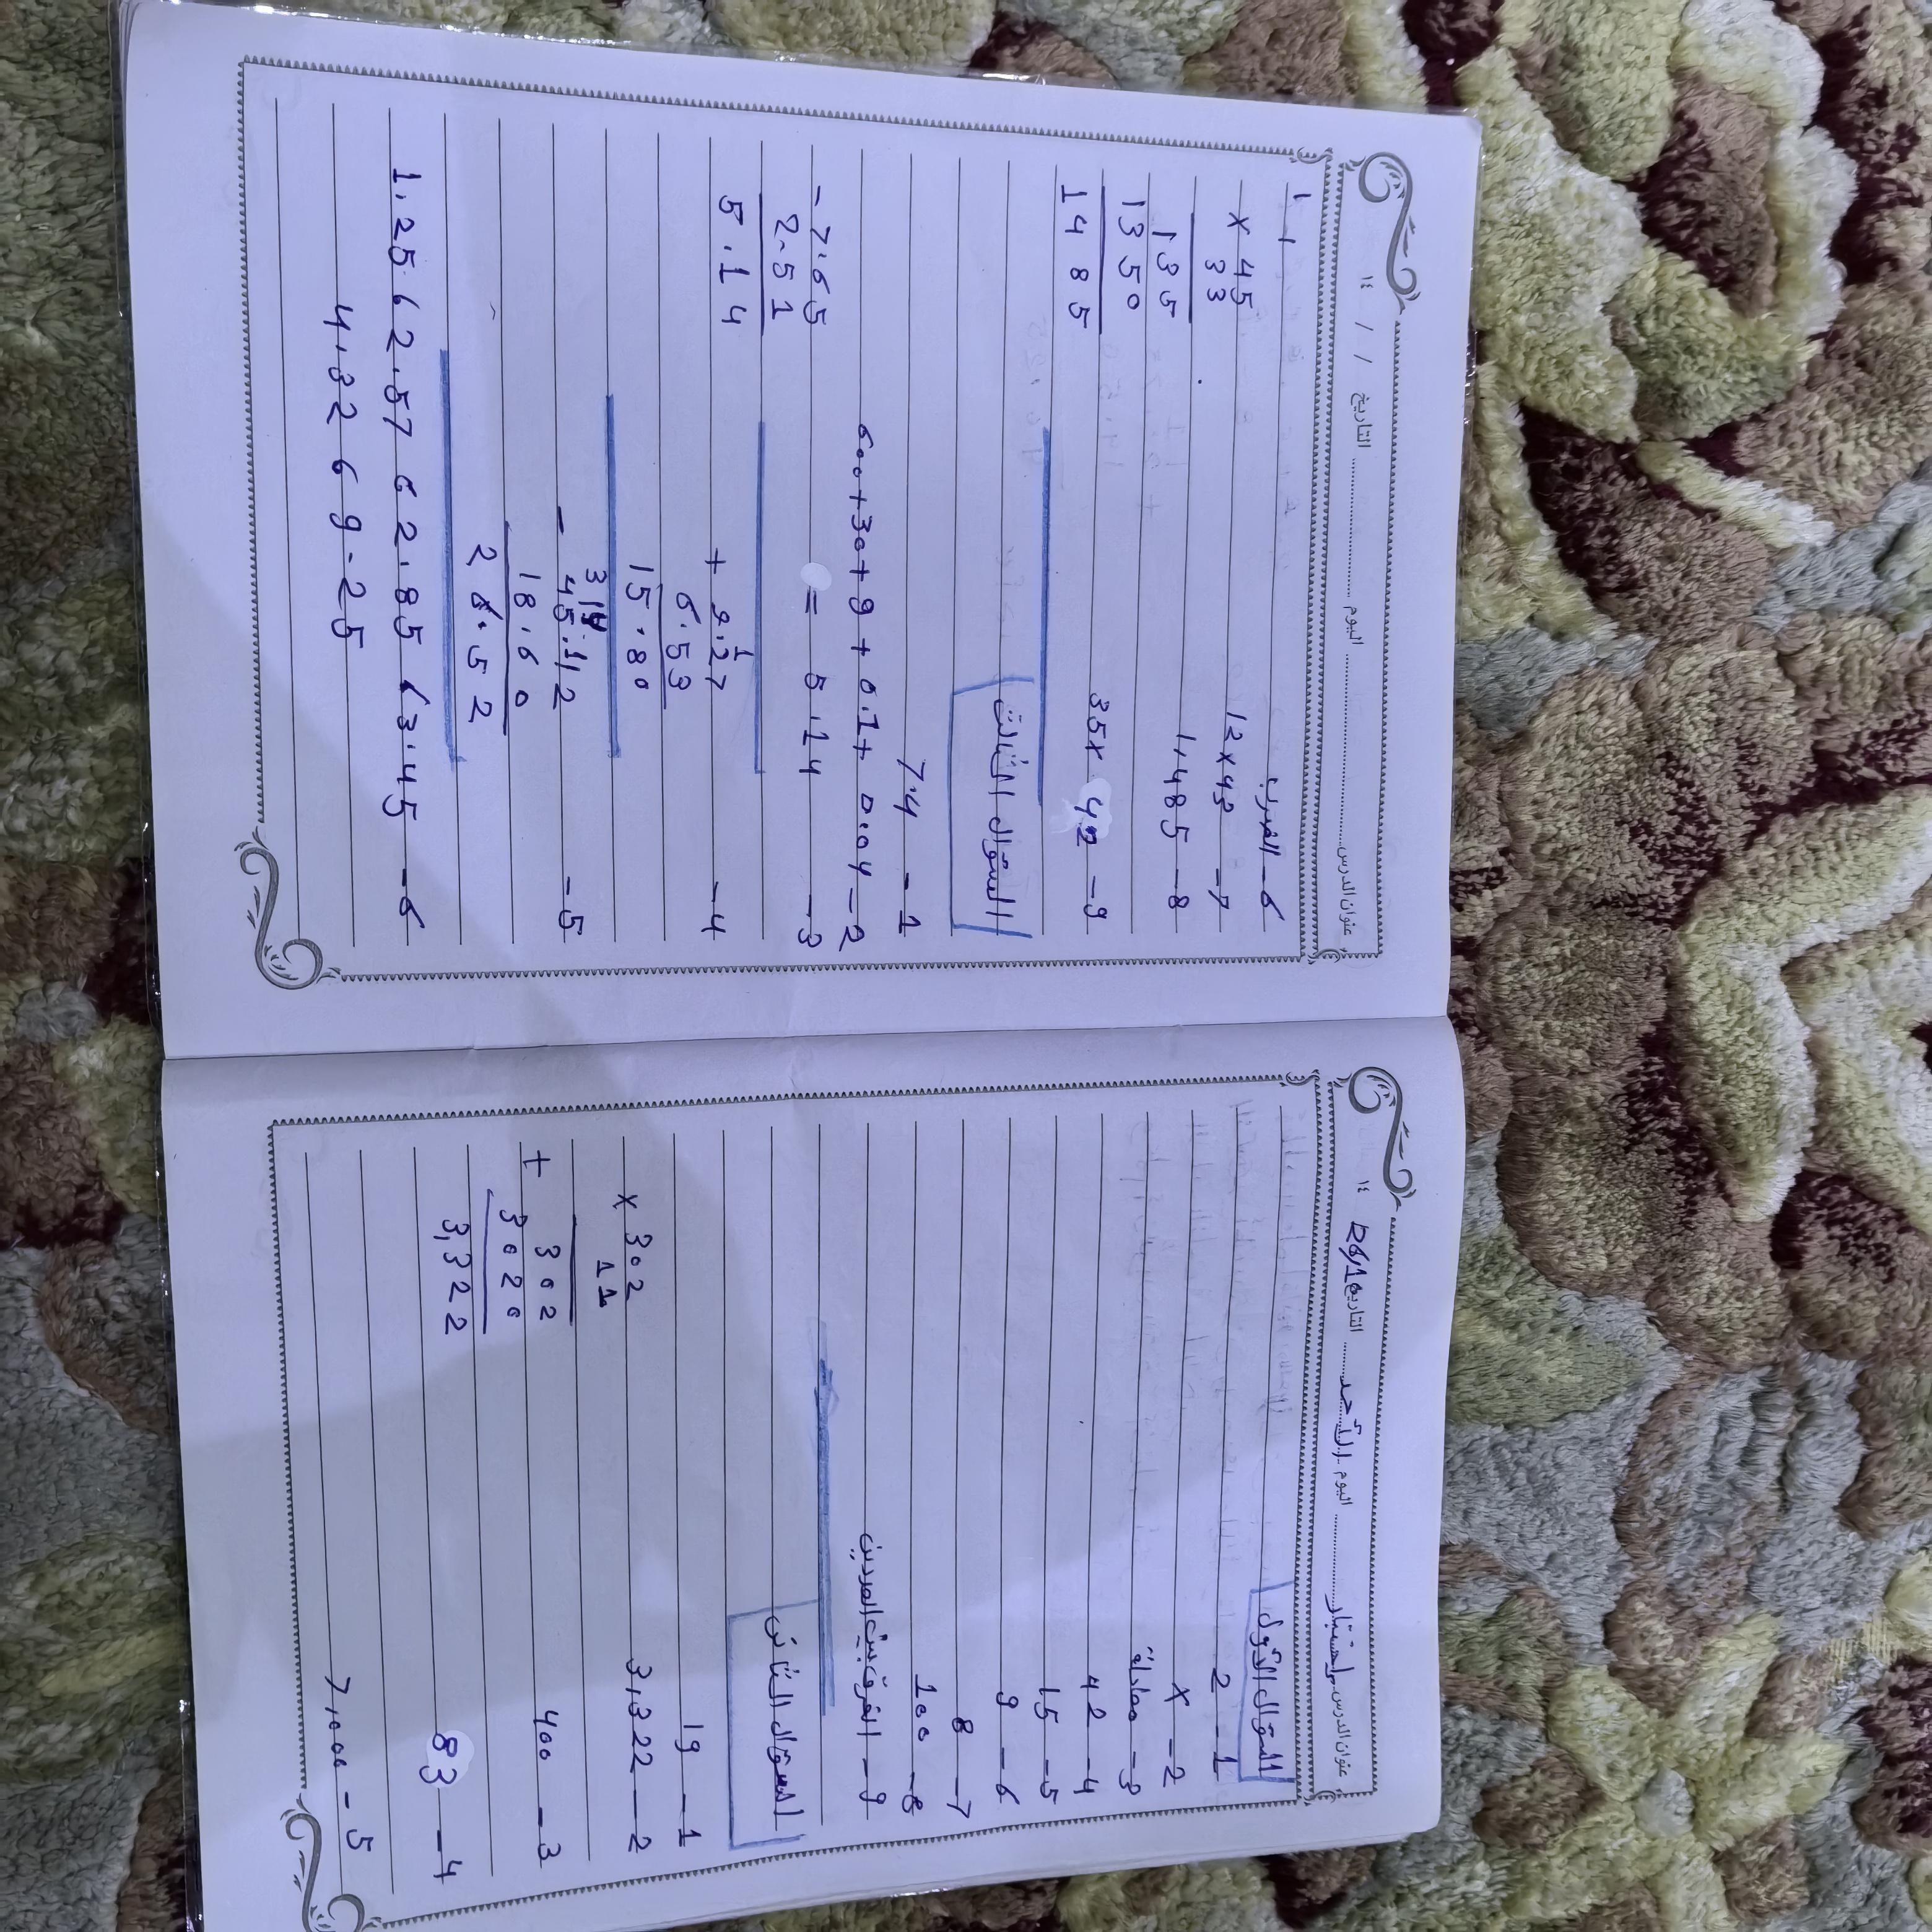 عنوان الدرس إختبار اليوم الأحد التاريخ ١٤
السؤال الأول
1- 2
2- x
3- معادلة
4- 42
5- 15
6- 9
7- 8
8- 100
9- الفرق بين العددين
السؤال الثاني
1- 19
2- 3,322
302
× 11
3- 400
302
+ 3020
3,322
4- 83
5- 7,000
عنوان الدرس اليوم التاريخ / / ١٤
6- الضرب
7- 12×43
8- 1,485
45
× 33
135
1350
1485
9- 35× 42
السؤال الثالث
1- 7.4
2- 600+30+9+0.1+0.04
3- 5.14 =
- 7.65
2.51
5.14
4- 1
+ 9.27
6.53
15.80
5- 3 14
- 45.112
18.60
26.52
6- 1.25 62.57 62.85 63.45
4.32 69.25